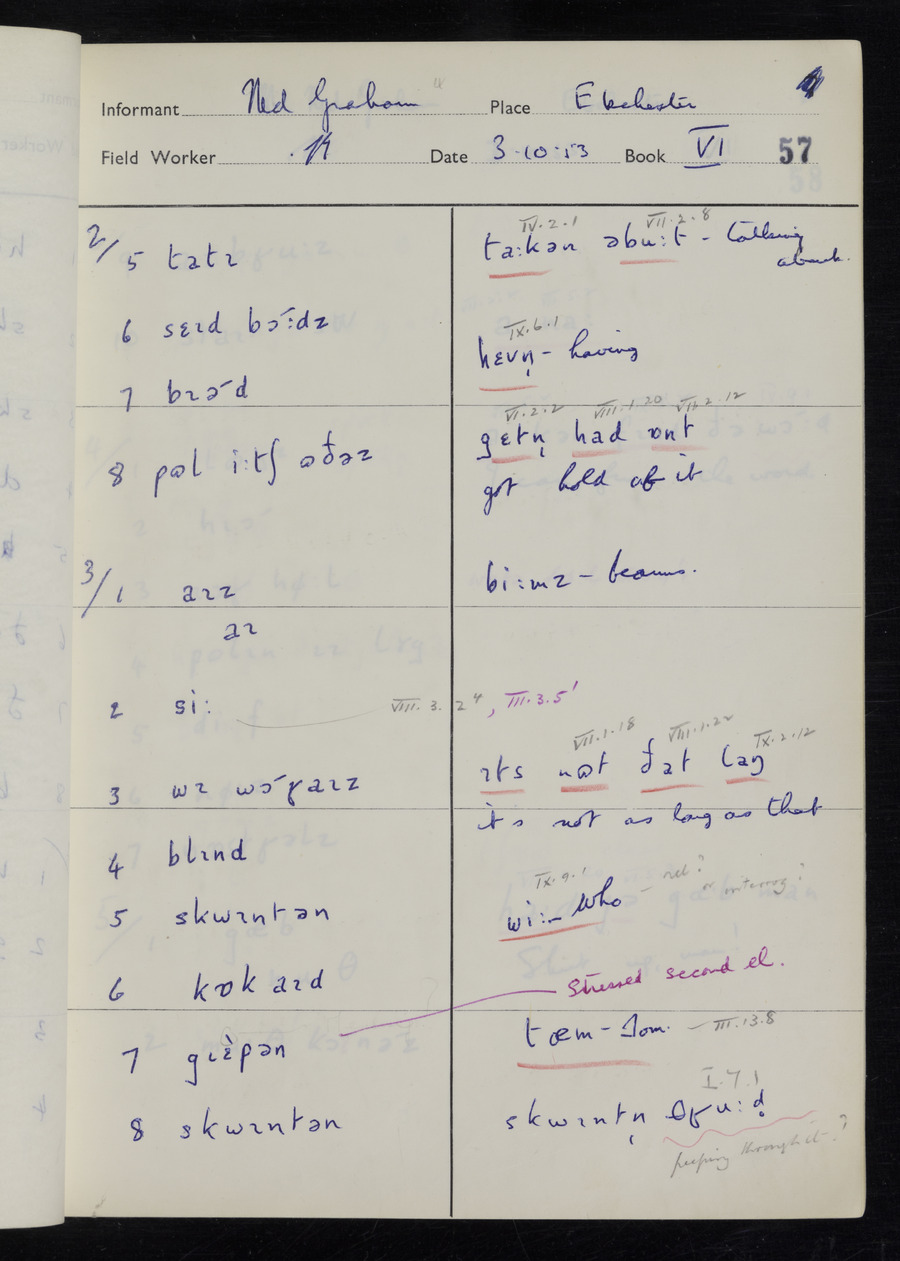 Informant Ned Graham 4 Place Ebchester
Field Worker Date 3·10·53 Book VI 57
2/5 tɛtɪ
IV.2.1 VII.2.8
ta:kən əbu:t - talking
about.
6 sɛɪd bɔ:dz
IX.6.1
hɛvn̩ - having
7
VI.2.2 VIII.1.20 VII.2.12
gɛtn̩ had ɒnt
8 i:tʃ
got hold of it
3/1 aɪz
bi:mz - beams.
aɪ
2 si:
VIII.3.2 4, III.3.5'
VII.1.18 VIII.1.22 IX.2.12
ɪts nɒt ðat laŋ
3
it's not as long as that
4 blɪnd
IX.9.1
wi:- Who - rel? or interrog?
5 skwɪntən
6 kɒkaɪd
Stressed second el.
tœm - Tom. - III.13.8
7 gɪɛ̀pən
I.7.1
8 skwɪntən
skwɪntn̩
peeping through it - ?